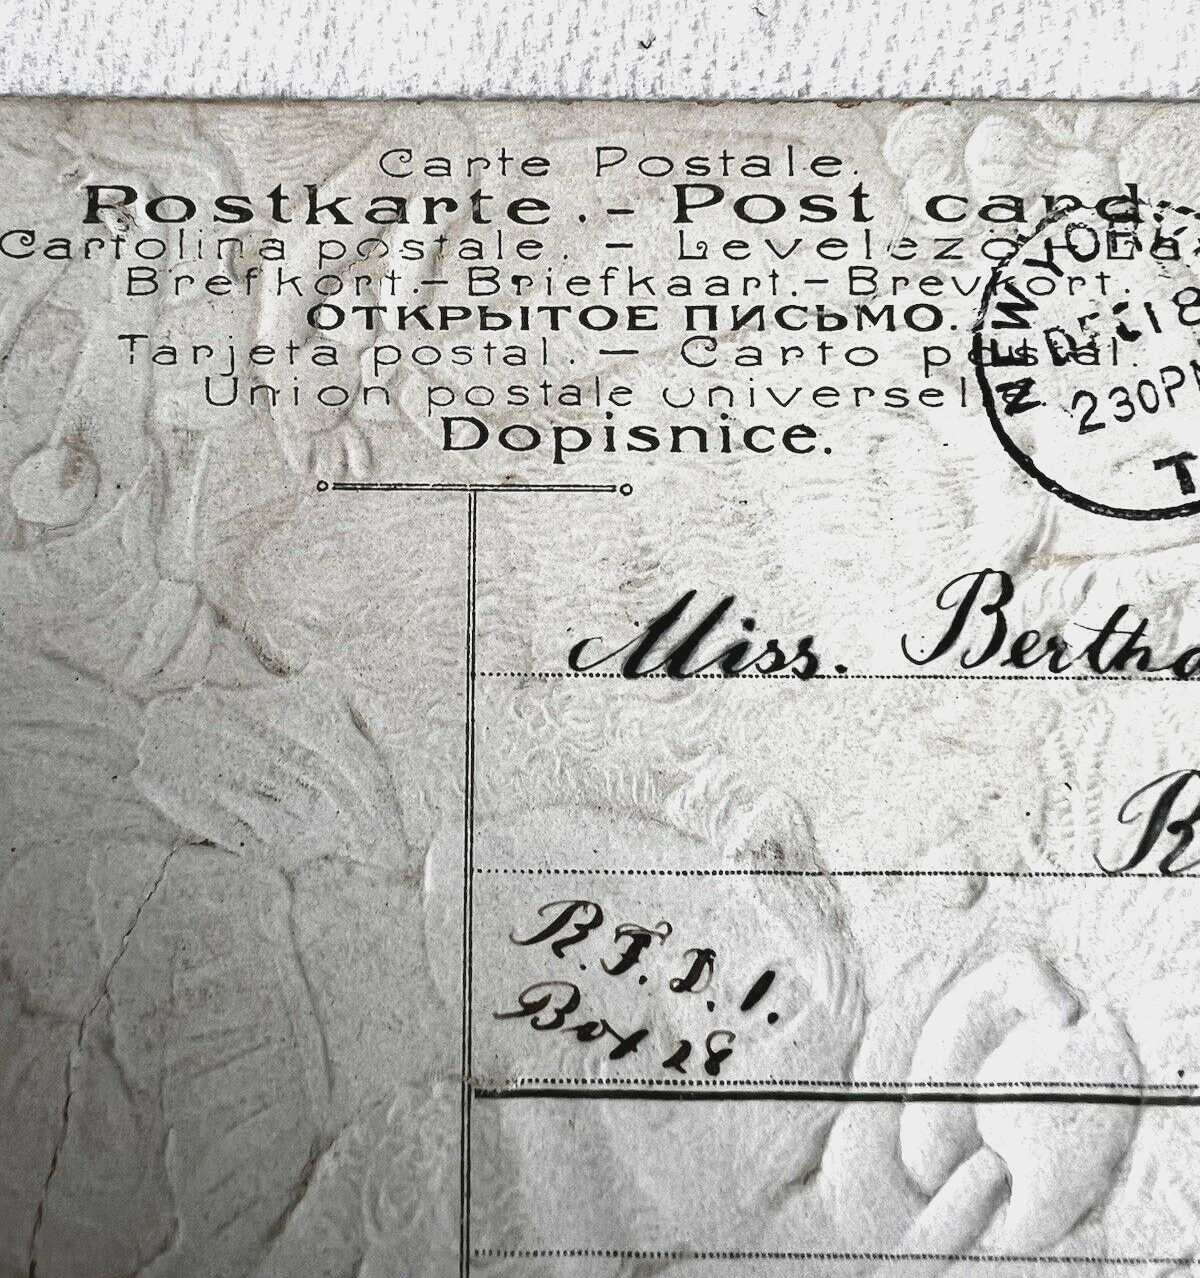 Carte Postale.
Postkarte.- Post card.
Cartolina postale. - Levelező-
Brefkort.-Briefkaart.-Brevkort.
ОТКРЫТОЕ ПИСЬМО.
Tarjeta postal. - Carto postal.
Union postale universel
Dopisnice.
NEW YORK
DEC 18
2 30 PM
Miss. Bertha
R. F. D. 1.
Box 28